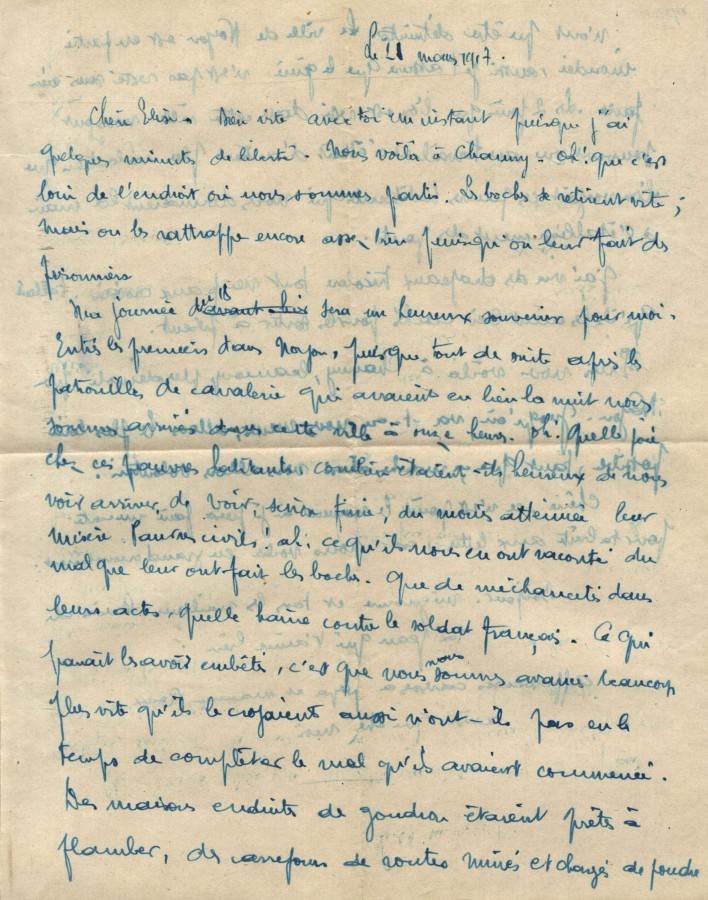 Le 21 mars 1917.
Chère Elise. Bien vite avec toi un instant puisque j'ai
quelques minutes de liberté. Nous voilà à Chauny. Oh! que c'est
loin de l'endroit où nous sommes partis. Les boches se retirent vite;
mais on les rattrappe encore assez bien puisqu'on leur fait des
prisonniers
Ma journée du 18 sera un heureux souvenir pour moi.
Entrés les premiers dans Noyon, puisque tout de suite après les
patrouilles de cavalerie qui avaient eu lieu la nuit nous
sommes arrivés dans cette ville à onze heures. Oh! Quelle joie
chez ces pauvres habitants combien étaient-ils heureux de nous
voir arriver, de voir, sinon finie, du moins atténuée leur
misère. Pauvres civils! ah! ce qu'ils nous en ont raconté du
mal que leur ont fait les boches. Que de méchancetés dans
leurs actes, quelle haine contre le soldat français. Ce qui
paraît les avoir embêtés, c'est que nous nous sommes avancés beaucoup
plus vite qu'ils le croyaient aussi n'ont-ils pas eu le
temps de compléter le mal qu'ils avaient commencé.
Des maisons enduites de goudron étaient prêtes à
flamber, des carrefours de routes minés et chargés de poudre